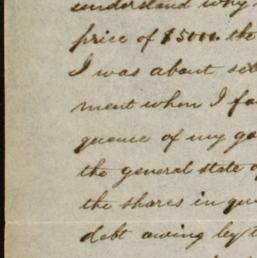 understand why
price of $5000 the
I was about set
ment when I fo
quence of my go
the general state o
the shares in qu
debt owing by t